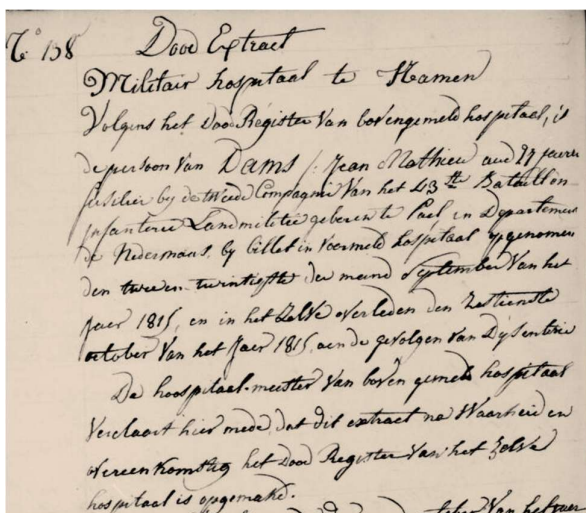 N° 138 Dood Extract
Militair hospitaal te Namen
Volgens het Dood Register Van bovengemeld hospitaal, is
de persoon Van Dams /: Jean Mathieu oud 27 jaaren
fuselier by de tweede Compagnie Van het 43ste Bataillon
infanterie Landmilitie geboren te Pael in Departement
de Nedermaas, by billet in voormeld hospitaal opgenomen
den twee en twintigste der maend September Van het
Jaer 1815, en in het Zelve overleden den Zestienste
october Van het Jaer 1815, aen de gevolgen van Dysenterie
De hoospitaal-meester Van boven gemeld hospitaal
Verclaart hier mede, dat dit extract na Waarheid en
overeenkomstig het Dood Register Van het Zelve
hospitaal is opgemakt.
Van het